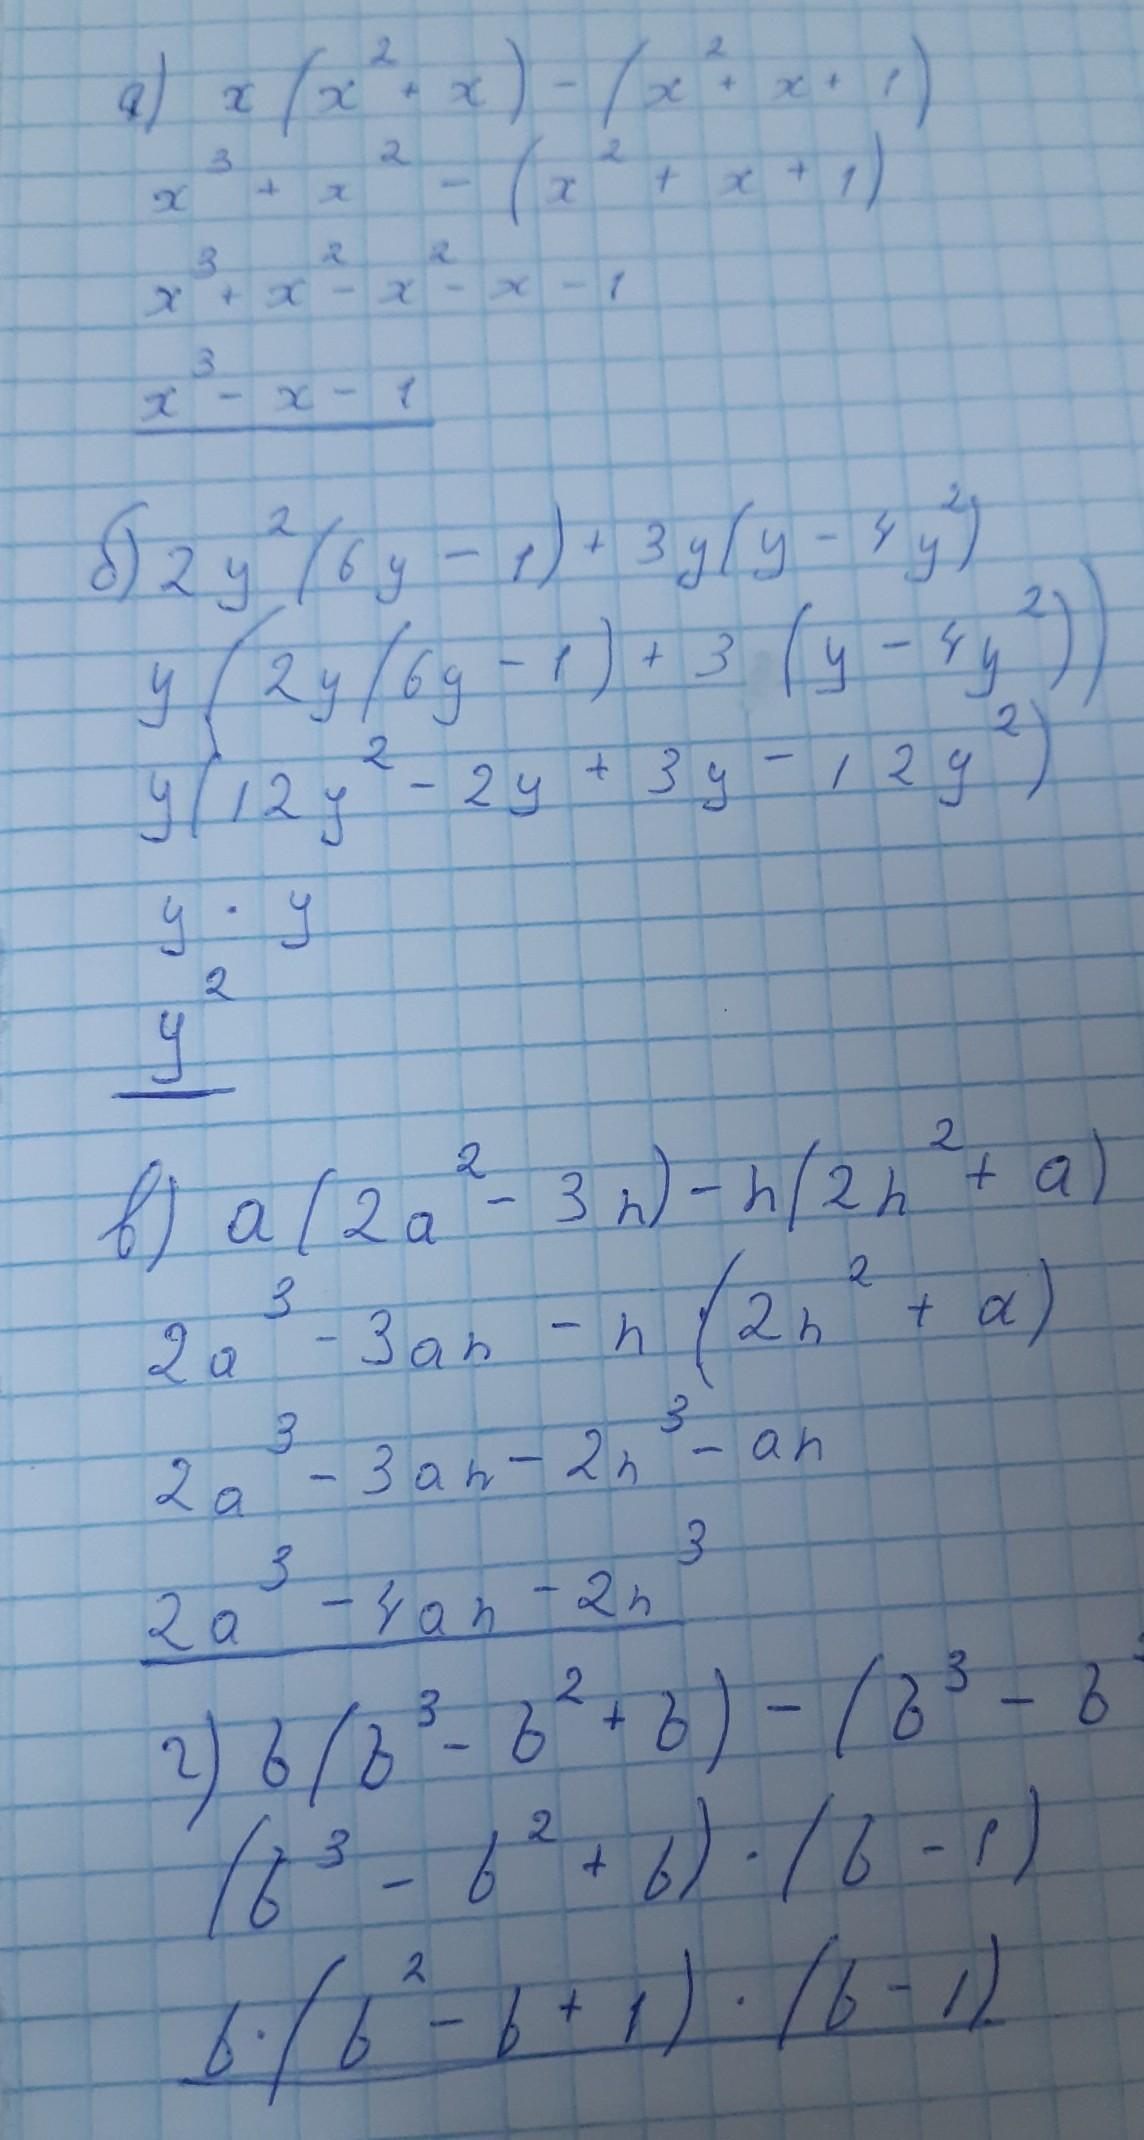 а) x(x² + x) - (x² + x + 1)
x³ + x² - (x² + x + 1)
x³ + x² - x² - x - 1
x³ - x - 1
б) 2y²(6y - 1) + 3y(y - 4y²)
y(2y(6y - 1) + 3(y - 4y²))
y(12y² - 2y + 3y - 12y²)
y · y
y²
в) a(2a² - 3n) - n(2n² + a)
2a³ - 3an - n(2n² + a)
2a³ - 3an - 2n³ - an
2a³ - 4an - 2n³
г) b(b³ - b² + b) - (b³ - b
(b³ - b² + b) · (b - 1)
b · (b² - b + 1) · (b - 1)